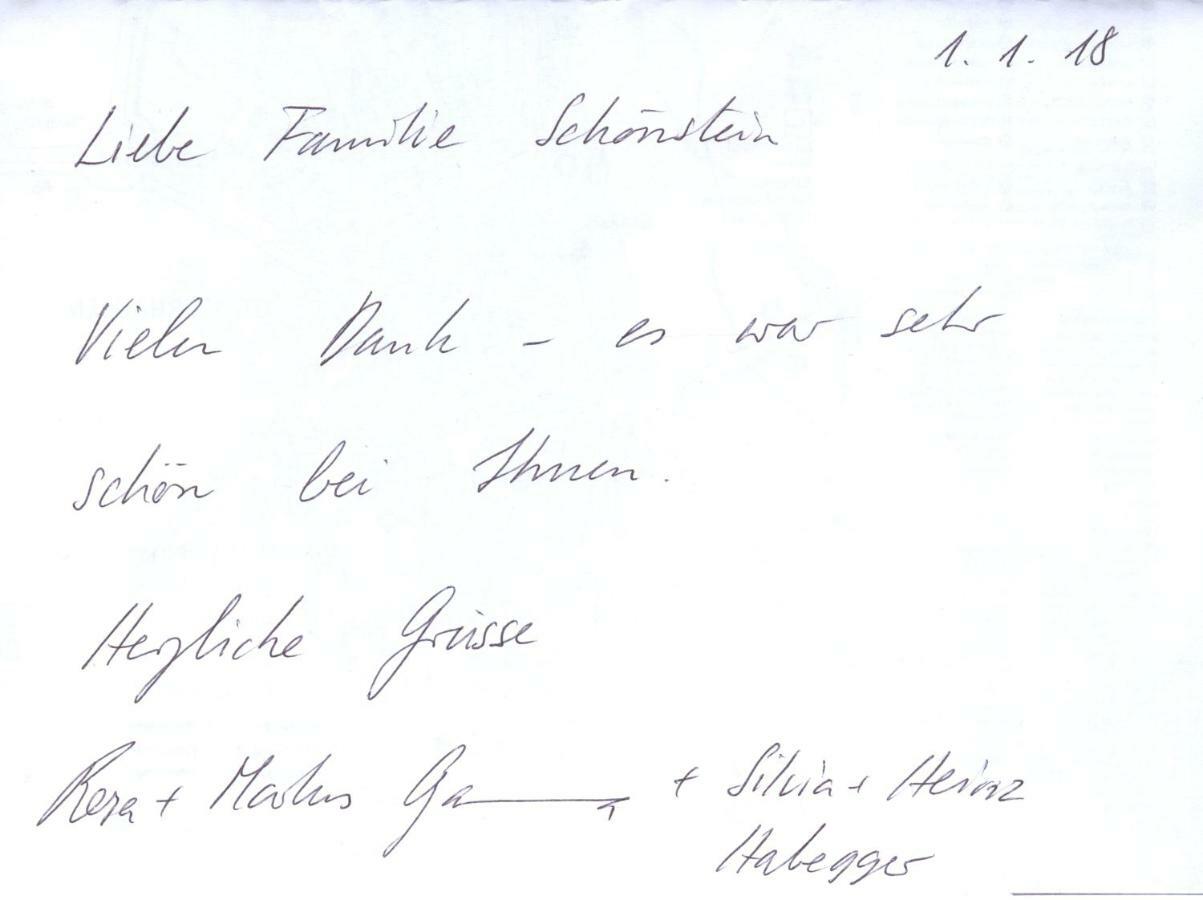 1. 1. 18
Liebe Familie Schönstein
Vielen Dank - es war sehr
schön bei Ihnen.
Herzliche Grüsse
Rosa + Markus + Silvia + Heinz
Habegger